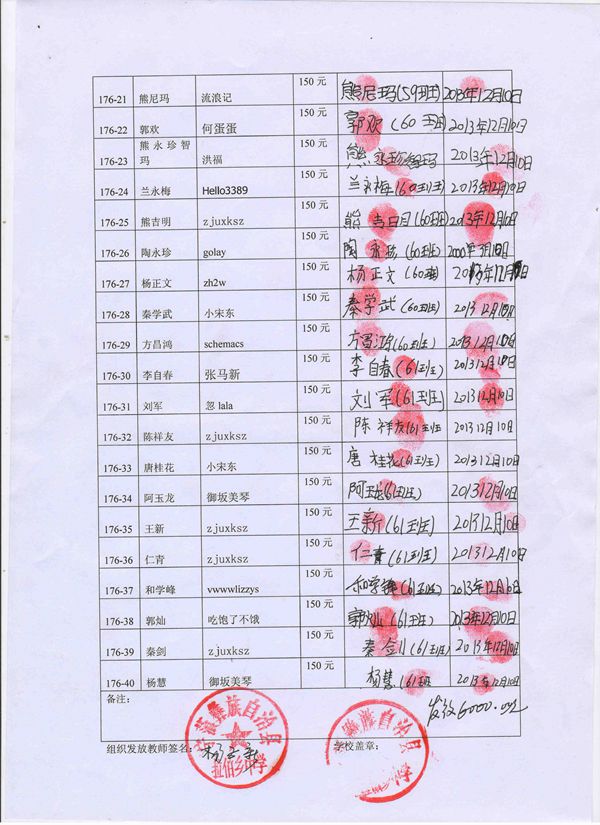 176-21 熊尼玛 流浪记 150 元 熊尼玛(59班) 2013年12月10日
176-22 郭欢 何蛋蛋 150 元 郭欢(60班) 2013年12月10日
176-23 熊永珍智玛 洪福 150 元 熊永珍智玛 2013年12月10日
176-24 兰永梅 Hello3389 150 元 兰永梅(60班) 2013年12月10日
176-25 熊吉明 zjuxksz 150 元 熊吉明(60班) 2013年12月10日
176-26 陶永珍 golay 150 元 陶永珍(60班)
176-27 杨正文 zh2w 150 元 杨正文(60班) 2013年12月10日
176-28 秦学武 小宋东 150 元 秦学武(60班) 2013 12月10日
176-29 方昌鸿 schemacs 150 元 方昌鸿(60班) 2013 12月10日
176-30 李自春 张马新 150 元 李自春(61班) 2013 12月10日
176-31 刘军 忽 lala 150 元 刘军(61班) 2013 12月10日
176-32 陈祥友 zjuxksz 150 元 陈祥友(61班 2013 12月10日
176-33 唐桂花 小宋东 150 元 唐桂花(61班) 2013 12月10日
176-34 阿玉龙 御坂美琴 150 元 阿玉龙(61班) 2013 12月10日
176-35 王新 zjuxksz 150 元 王新(61班) 2013 12月10日
176-36 仁青 zjuxksz 150 元 仁青(61班) 2013 12月10日
176-37 和学峰 vwwwlizzys 150 元 和学峰(61班) 2013年12月10日
176-38 郭灿 吃饱了不饿 150 元 郭灿(61班) 2013年12月10日
176-39 秦剑 zjuxksz 150 元 秦剑(61班) 2013年12月10日
176-40 杨慧 御坂美琴 150 元 杨慧(61班 2013年12月10日
备注： 发放6000.
蒗彝族自治县
彝族自治县
组织发放教师签名： 学校盖章：
拉伯乡中学
中学